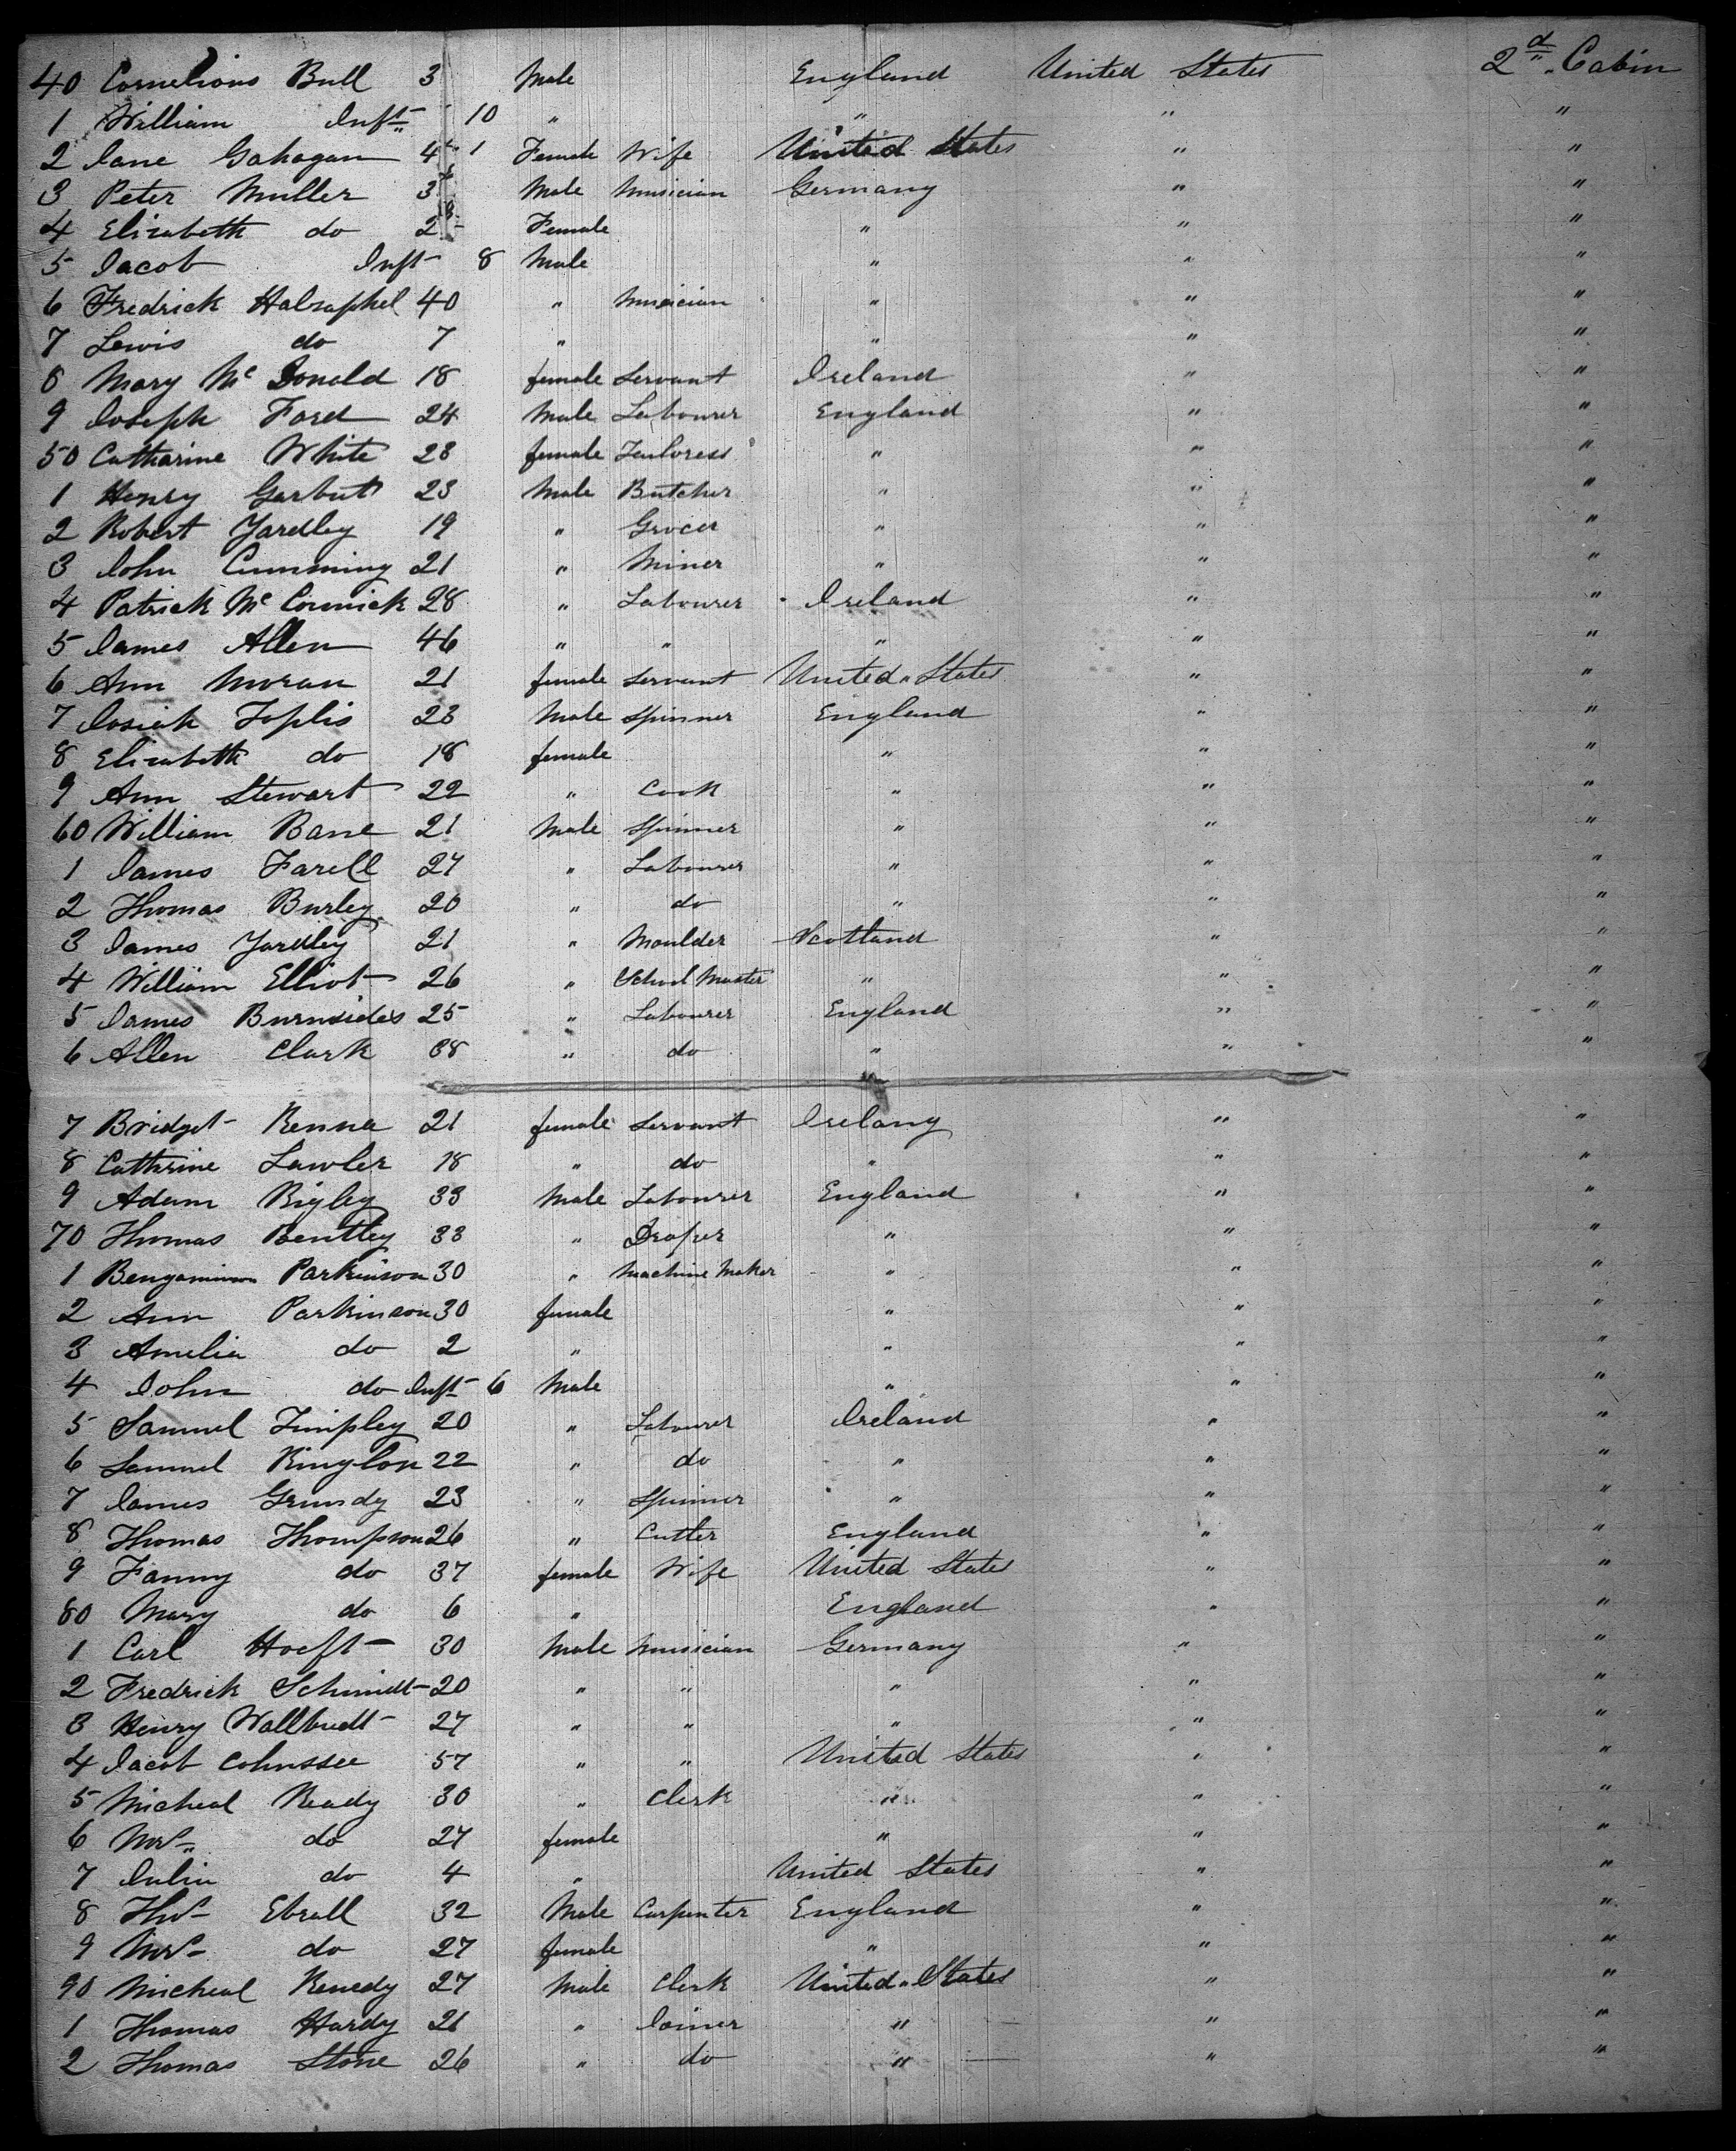 40 Cornelious Bull 3 Male England United States 2d Cabin
1 William Inft 10 " " " "
2 Jane Gahagan 4 1 Female Wife United States " "
3 Peter Muller 3 Male Musician Germany " "
4 Elizabeth do 2 Female " " "
5 Jacob Inft 8 Male " " "
6 Fredrick Halsaphel 40 " Musician " " "
7 Lewis do 7 " " " "
8 Mary Mc Donald 18 female Servant Ireland " "
9 Joseph Ford 24 Male Labourer England " "
50 Catharine White 23 female Tailoress " " "
1 Henry Garbut 23 Male Butcher " " "
2 Robert Yardley 19 " Grocer " " "
3 John Cumming 21 " Miner " " "
4 Patrick Mc Cormick 28 " Labourer Ireland " "
5 James Allen 46 " " " " "
6 Ann Moran 21 female Servant United States " "
7 Josiah Toplis 23 Male Spinner England " "
8 Elizabeth do 18 female " " "
9 Ann Stewart 22 " Cook " " "
60 William Bane 21 Male Spinner " " "
1 James Farell 27 " Labourer " " "
2 Thomas Burley 20 " do " " "
3 James Yardley 21 " Moulder Scotland " "
4 William Elliot 26 " School Master " " "
5 James Burnsides 25 " Labourer England " "
6 Allen Clark 38 " do " " "
7 Bridget Kenna 21 female Servant Irelany " "
8 Cathrine Lawler 18 " do " " "
9 Adam Rigley 33 Male Labourer England " "
70 Thomas Bentley 33 " Draper " " "
1 Bengamin Parkinson 30 " Machine Maker " " "
2 Ann Parkinson 30 female " " "
3 Amelia do 2 " " " "
4 John do Inft 6 Male " " "
5 Samuel Timpley 20 " Labourer Ireland " "
6 Samuel Kinglon 22 " do " " "
7 James Grundy 23 " Spinner " " "
8 Thomas Thompson 26 " Cutler England " "
9 Fanny do 37 female Wife United States " "
80 Mary do 6 " England " "
1 Carl Hoeft 30 Male Musician Germany " "
2 Fredrick Schmidt 20 " " " " "
3 Henry Wallbudt 27 " " " " "
4 Jacob Cohnssee 57 " " United States " "
5 Micheal Ready 30 " Clerk " " "
6 Mrs do 27 female " " "
7 Julia do 4 " United States " "
8 Thos Eball 32 Male Carpenter England " "
9 Mrs do 27 female " " "
90 Micheal Kenedy 27 Male Clerk United States " "
1 Thomas Hardy 21 " Joiner " " "
2 Thomas Stone 26 " do " " "